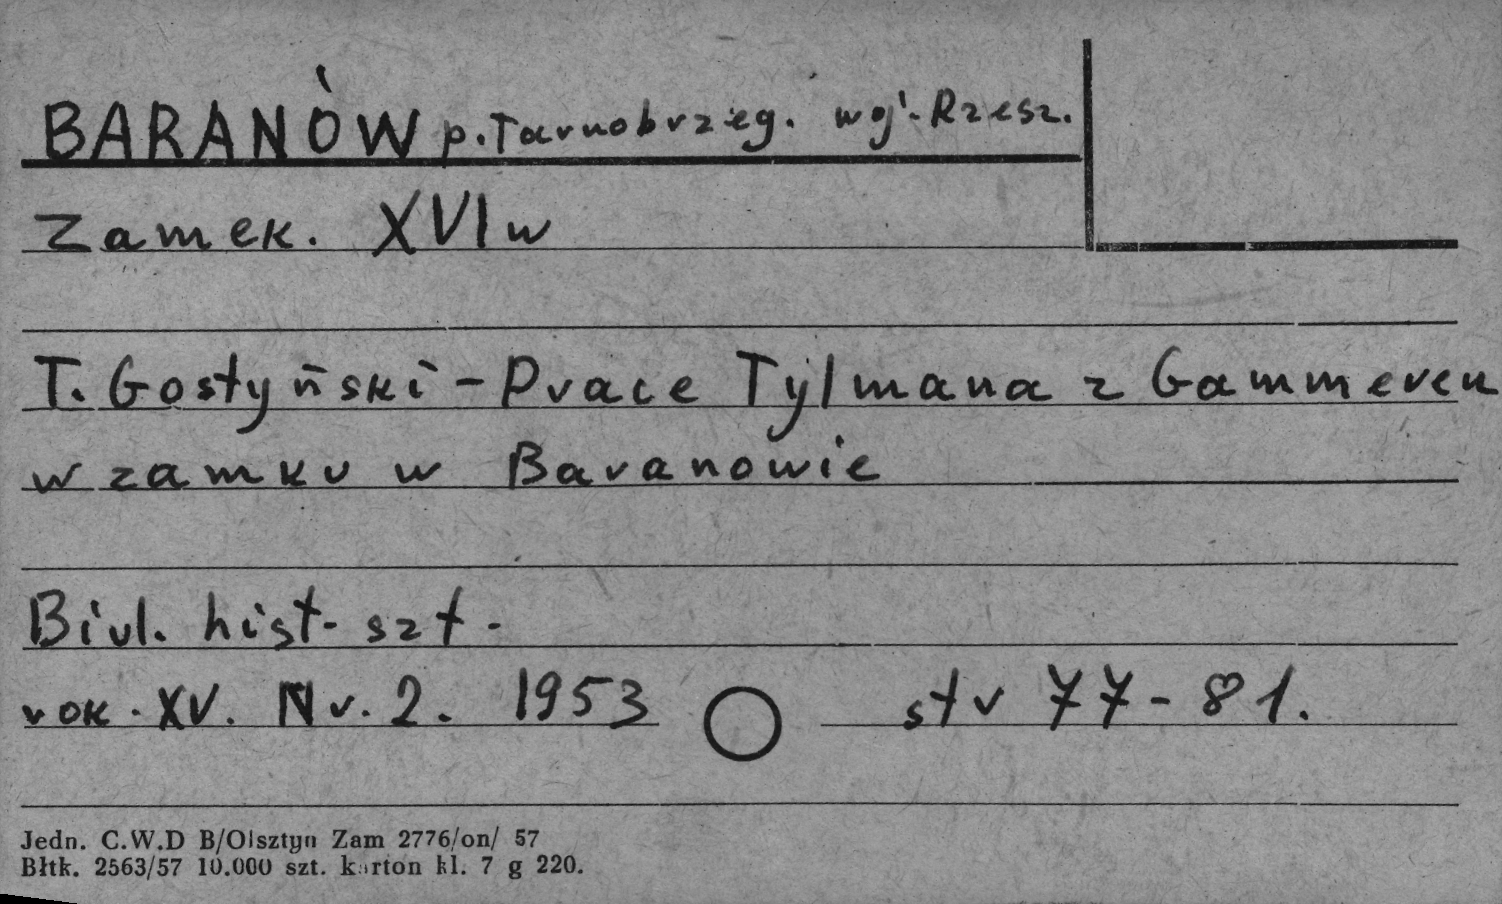 BARANÓW p. Tarnobrzeg. woj. Rzesz.
Zamek. XVI w
T. Gostyński - Prace Tylmana z Gammeren
w zamku w Baranowie
Biul. hist. szt.
rok. XV. Nr. 2. 1953 str 77-81.
Jedn. C.W.D B/Olsztyn Zam 2776/on/ 57
Błtk. 2563/57 10.000 szt. karton kl. 7 g 220.